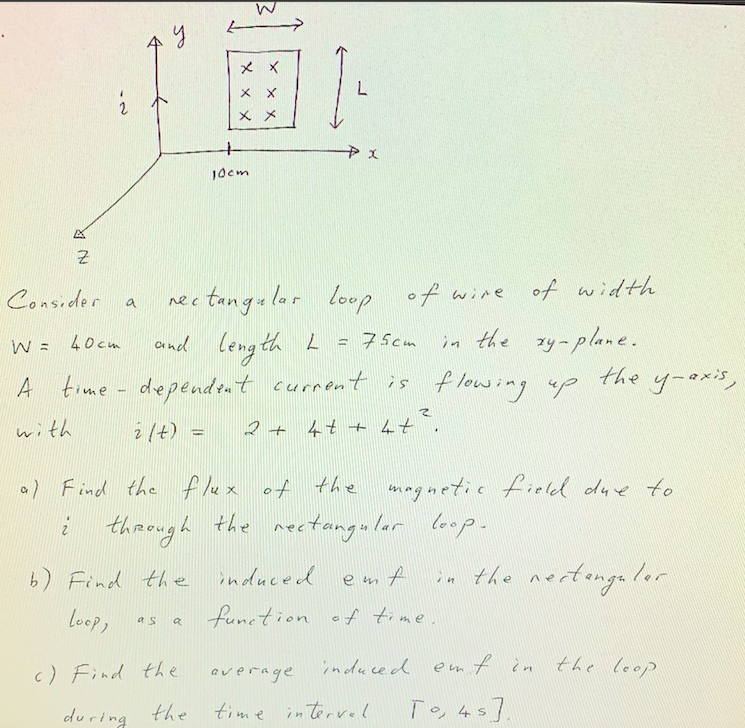 W
y
x x
i x x L
x x
x
10cm
z
Consider a rectangular loop of wire of width
W = 40cm and length L = 75cm in the xy-plane.
A time-dependent current is flowing up the y-axis,
with i(t) = 2 + 4t + 4t².
a) Find the flux of the magnetic field due to
i through the rectangular loop.
b) Find the induced emf in the rectangular
loop, as a function of time.
c) Find the average induced emf in the loop
during the time interval [0, 4s].